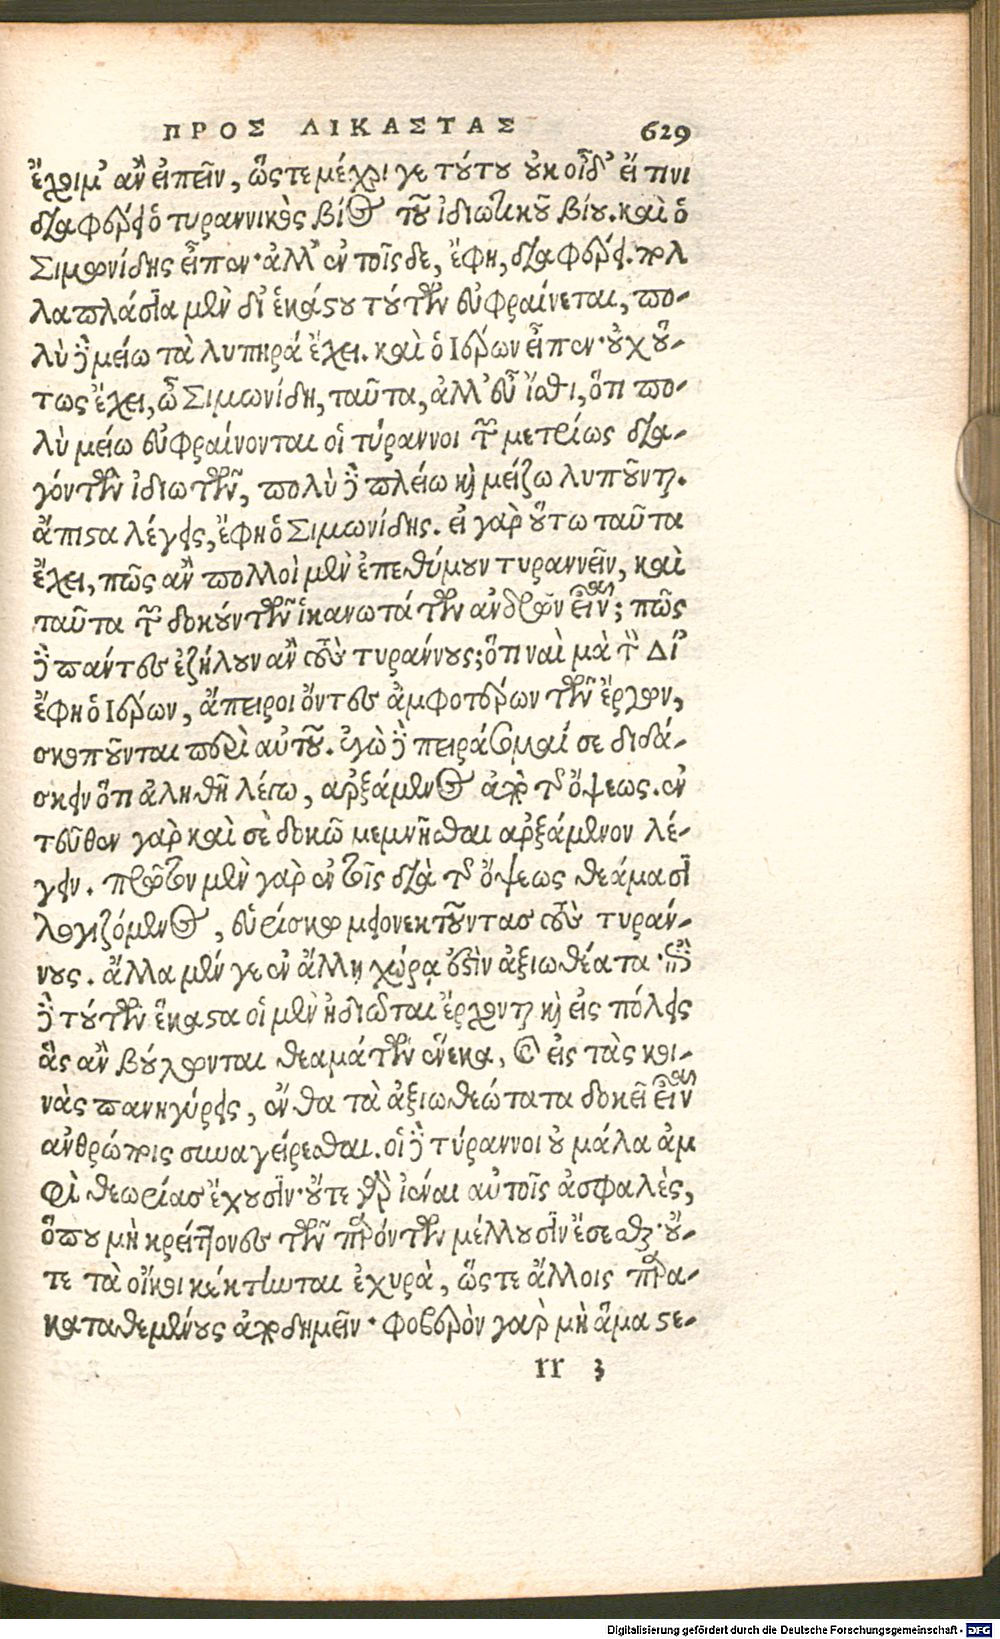 ΠΡΟΣ ΔΙΚΑΣΤΑΣ 629
ἔχοιμ' ἂν εἰπεῖν, ὥςτε μέχρι γε τούτου οὐκ οἶδ' εἴ τινι
διαφέρει ὁ τυραννικὸς βίος τοῦ ἰδιωτικοῦ βίου. καὶ ὁ
Σιμωνίδης εἶπεν· ἀλλ' ἐν τοῖς δε, ἔφη, διαφέρει. πολ
λαπλάσια μὲν δι' ἑκάστου τούτων εὐφραίνεται, πο-
λὺ δὲ μείω τὰ λυπηρά ἔχει. καὶ ὁ Ιέρων εἶπεν· οὐχ οὕ-
τως ἔχει, ὦ Σιμωνίδη, ταῦτα, ἀλλ' εὖ ἴσθι, ὅτι πο-
λὺ μείω εὐφραίνονται οἱ τύραννοι τῶν μετρίως δια-
γόντων ἰδιωτῶν, πολὺ δὲ πλείω καὶ μείζω λυποῦνται.
ἄπιστα λέγεις, ἔφη ὁ Σιμωνίδης. εἰ γὰρ οὕτω ταῦτα
ἔχει, πῶς ἂν πολλοὶ μὲν ἐπεθύμουν τυραννεῖν, καὶ
ταῦτα τῶν δοκούντων ἱκανωτάτων ἀνδρῶν εἶναι; πῶς
δὲ πάντες ἐζήλουν ἂν τοὺς τυράννους; ὅτι ναὶ μὰ τὸν Δί'
ἔφη ὁ Ιέρων, ἄπειροι ὄντες ἀμφοτέρων τῶν ἔργων,
σκοποῦνται περὶ αὐτοῦ. ἐγὼ δὲ πειράσομαί σε διδά-
σκειν ὅτι ἀληθῆ λέγω, ἀρξάμενος ἀπὸ τῆς ὄψεως. ἐν
τεῦθεν γὰρ καὶ σὲ δοκῶ μεμνῆσθαι ἀρξάμενον λέ-
γειν. πρῶτον μὲν γὰρ ἐν τοῖς διὰ τῆς ὄψεως θεάμασι
λογιζόμενος, εὑρίσκω μειονεκτοῦντας τοὺς τυράν-
νους. ἄλλα μέν γε ἐν ἄλλῃ χώρᾳ ἐστὶν ἀξιωθέατα· ἐπὶ
δὲ τούτων ἕκαστα οἱ μὲν ἰδιῶται ἔρχονται καὶ εἰς πόλεις
ἃς ἂν βούλωνται θεαμάτων ἕνεκα, καὶ εἰς τὰς κοι-
νὰς πανηγύρεις, ἔνθα τὰ ἀξιωθεώτατα δοκεῖ εἶναι
ἀνθρώποις συναγείρεσθαι. οἱ δὲ τύραννοι οὐ μάλα ἀμ
φὶ θεωρίας ἔχουσιν· οὔτε γὰρ ἰέναι αὐτοῖς ἀσφαλὲς,
ὅπου μὴ κρείττονες τῶν παρόντων μέλλουσιν ἔσεσθαι· οὔ-
τε τὰ οἴκοι κέκτηνται ἐχυρὰ, ὥςτε ἄλλοις παρα-
καταθεμένους ἀποδημεῖν· φοβερὸν γὰρ μὴ ἅμα στε-
rr 3
Digitalisierung gefördert durch die Deutsche Forschungsgemeinschaft - DFG